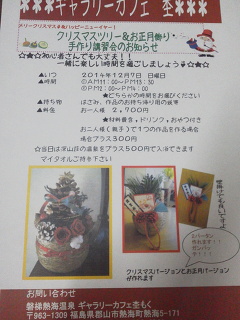 ***ギャラリーカフェ 杢***
メリークリスマス&ハッピーニューイヤー!
クリスマスツリー&お正月飾り
手作り講習会のお知らせ
☆★☆初心者さんでも大丈夫!!
一緒に楽しい時間を過ごしましょう
▲いつ 2014年12月7日 日曜日
▲時間 ①AM11:00~PM13:30
②PM2:00~PM4:00
★どちらかの時間でお選びください
▲持ち物 はさみ、作品のお持ち帰り用の袋等
▲料金 お一人様 2,700円
★材料費含、ドリンク,おやつ付き
お二人様(親子)で1つの作品を作る場合
料金プラス300円
マイタオルご持参下さい
壁掛けでも良いですよ
2バージョン
作れます!!
クリスマスバージョンとお正月バージョン
が作れます
お問い合わせ
磐梯熱海 ギャラリーカフェ杢もく
〒963-1309 福島県郡山市熱海町熱海5-171